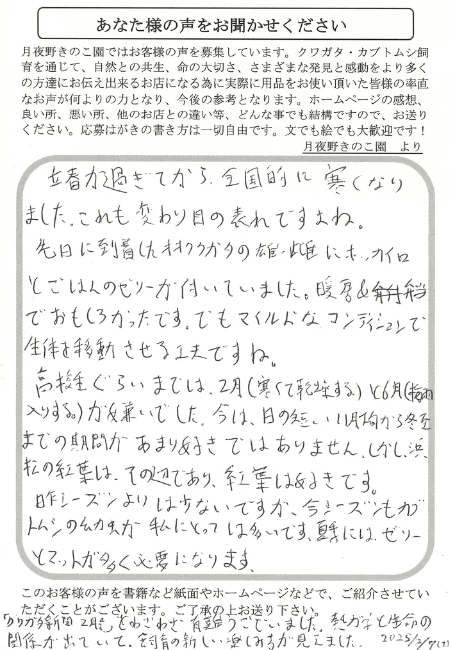 あなた様の声をお聞かせください
月夜野きのこ園ではお客様の声を募集しています。クワガタ・カブトムシ飼
育を通じて、自然との共生、命の大切さ、さまざまな発見と感動をより多く
の方達にお伝え出来るお店になる為に実際に用品をお使い頂いた皆様の率直
なお声が何よりの力となり、今後の参考となります。ホームページの感想、
良い所、悪い所、他のお店との違い等、どんな事でも結構ですので、お送り
ください。応募はがきの書き方は一切自由です。文でも絵でも大歓迎です！
月夜野きのこ園　より
立春が過ぎてから、全国的に寒くなり
ました。これも変わり目の表れですよね。
先日に到着したオオクワガタの雄・雌にホッカイロ
とごはんのゼリーが付いていました。暖房&弁当
でおもしろかったです。でもマイルドなコンディションで
生体を移動させる工夫ですね。
高校生ぐらいまでは、2月(寒くて乾燥する)と6月(梅雨
入りする。)が嫌いでした。今は、日の短い11月頃から冬至
までの期間があまり好きではありません。しかし、浜
松の紅葉は、その辺であり、紅葉は好きです。
昨シーズンよりは少ないですが、今シーズンもカブ
トムシの幼虫が私にとっては多いです。春には、ゼリー
とマットが多く必要になります。
このお客様の声を書籍など紙面やホームページなどで、ご紹介させてい
ただくことがございます。ご了承の上お送り下さい。
「クワガタ新聞2月号」をわざわざ有難うございました。熱帯と生命の
関係が出ていて、飼育の新しい楽しみ方が見えました。2025/2/7(金)